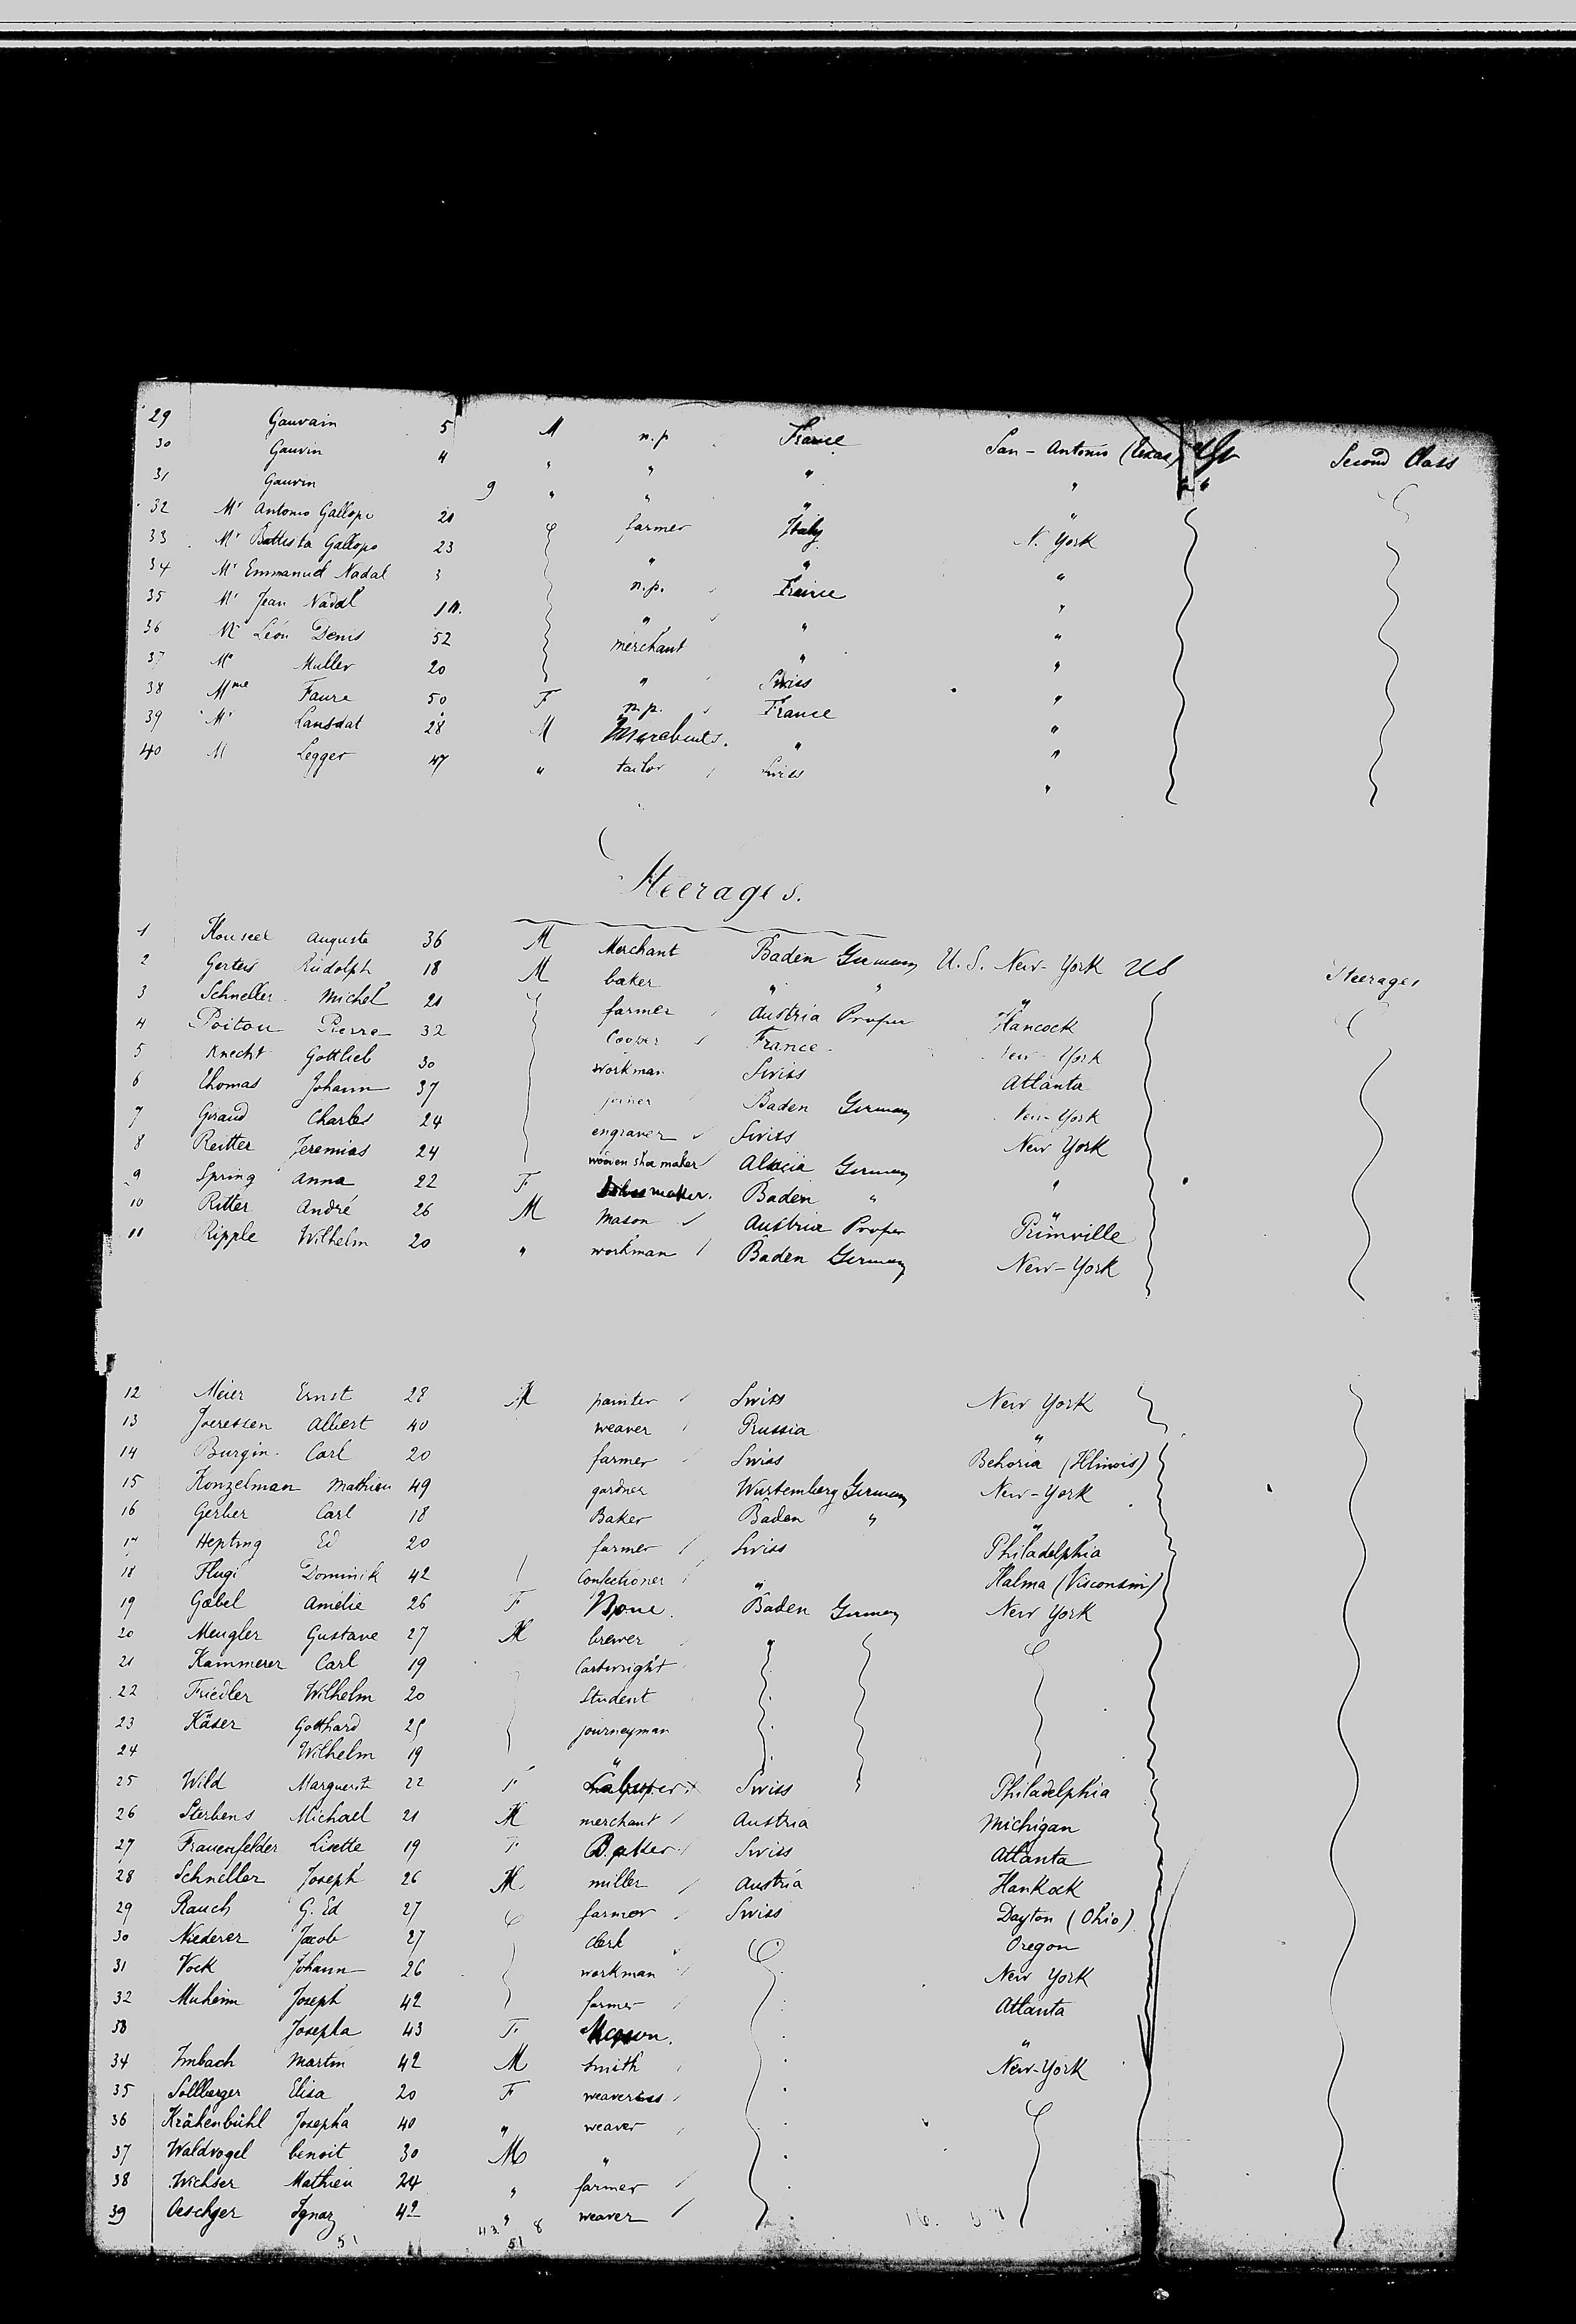 29 Gauvain 5 M n.p France San-Antonio (Texas) Second Class
30 Gauvin 4 " " " "
31 Gauvin 9 " " " "
32 Mr Antonio Gallopo 21 farmer Italy N. York
33 Mr Battista Gallopo 23 " " "
34 Mr Emmanuel Nadal 3 n.p. France "
35 Mr Jean Nadal " " "
36 Mr Léon Denis 52 merchant " "
37 Mr Muller 20 " Swiss "
38 Mme Faure 50 F n.p. France "
39 Mr Lansdat 28 M " "
40 M Legger 47 " tailor Swiss "
Steerages.
1 Auguste 36 M Merchant Baden Germany U.S. New-York US Steerages
2 Gerteis Rudolph 18 M baker " " "
3 Schneller Michel 21 farmer Austria Proper Hancock
4 Poitou Pierre 32 Cooper France New-York
5 Knecht Gottlieb 30 workman Swiss Atlanta
6 Thomas Johann 37 joiner Baden Germany New-York
7 Giraud Charles 24 engraver Swiss New York
8 Reitter Jeremias 24 wooen shoe maker Alsacia Germany "
9 Spring Anna 22 F Baden " "
10 Ritter André 26 M Mason Austria Proper Prinville
11 Ripple Wilhelm 20 " workman Baden Germany New-York
12 Meier Ernst 28 M painter Swiss New York
13 Joeressen Albert 40 weaver Prussia "
14 Burgin Carl 20 farmer Swiss Behoria (Illinois)
15 Konzelman Mathieu 49 gardner Wurtemberg Germany New-York
16 Gerber Carl 18 Baker Baden " "
17 Hepting Ed 20 farmer Swiss Philadelphia
18 Flugi Dominik 42 Confectioner " Halma (Visconsin)
19 Gabel Amélie 26 F None Baden Germany New York
20 Mengler Gustave 27 M brewer "
21 Kammerer Carl 19 Cartwright
22 Friedler Wilhelm 20 Student
23 Käser Gotthard 25 journeyman
24 Wilhelm 19 "
25 Wild Marguerit 22 F Swiss Philadelphia
26 Sterbens Michael 21 M merchant Austria Michigan
27 Frauenfelder Lisette 19 F Swiss Atlanta
28 Schneller Joseph 26 M miller Austria Hankock
29 Rauch G. Ed 27 farmer Swiss Dayton (Ohio)
30 Niederer Jacob 27 Clerk Oregon
31 Vock Johann 26 workman New York
32 Muheim Joseph 42 farmer Atlanta
33 Josepha 43 F "
34 Imbach Martin 42 M Smith New-York
35 Sollberger Elisa 20 F weaver
36 Krähenbühl Josepha 40 " weaver
37 Waldvogel benoit 30 M "
38 Wichser Mathieu 24 " farmer
39 Oeschger Ignaz 42 " weaver
51 43 8
51